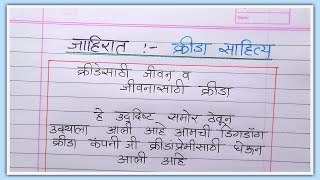 जाहिरात :- क्रीडा साहित्य
क्रीडेसाठी जीवन व
जीवनासाठी क्रीडा
हे उद्दिष्ट समोर ठेवून
उदयाला आली आहे आमची डिंगडाँग
क्रीडा कंपनी जी क्रीडाप्रेमीसाठी घेऊन
आली आहे